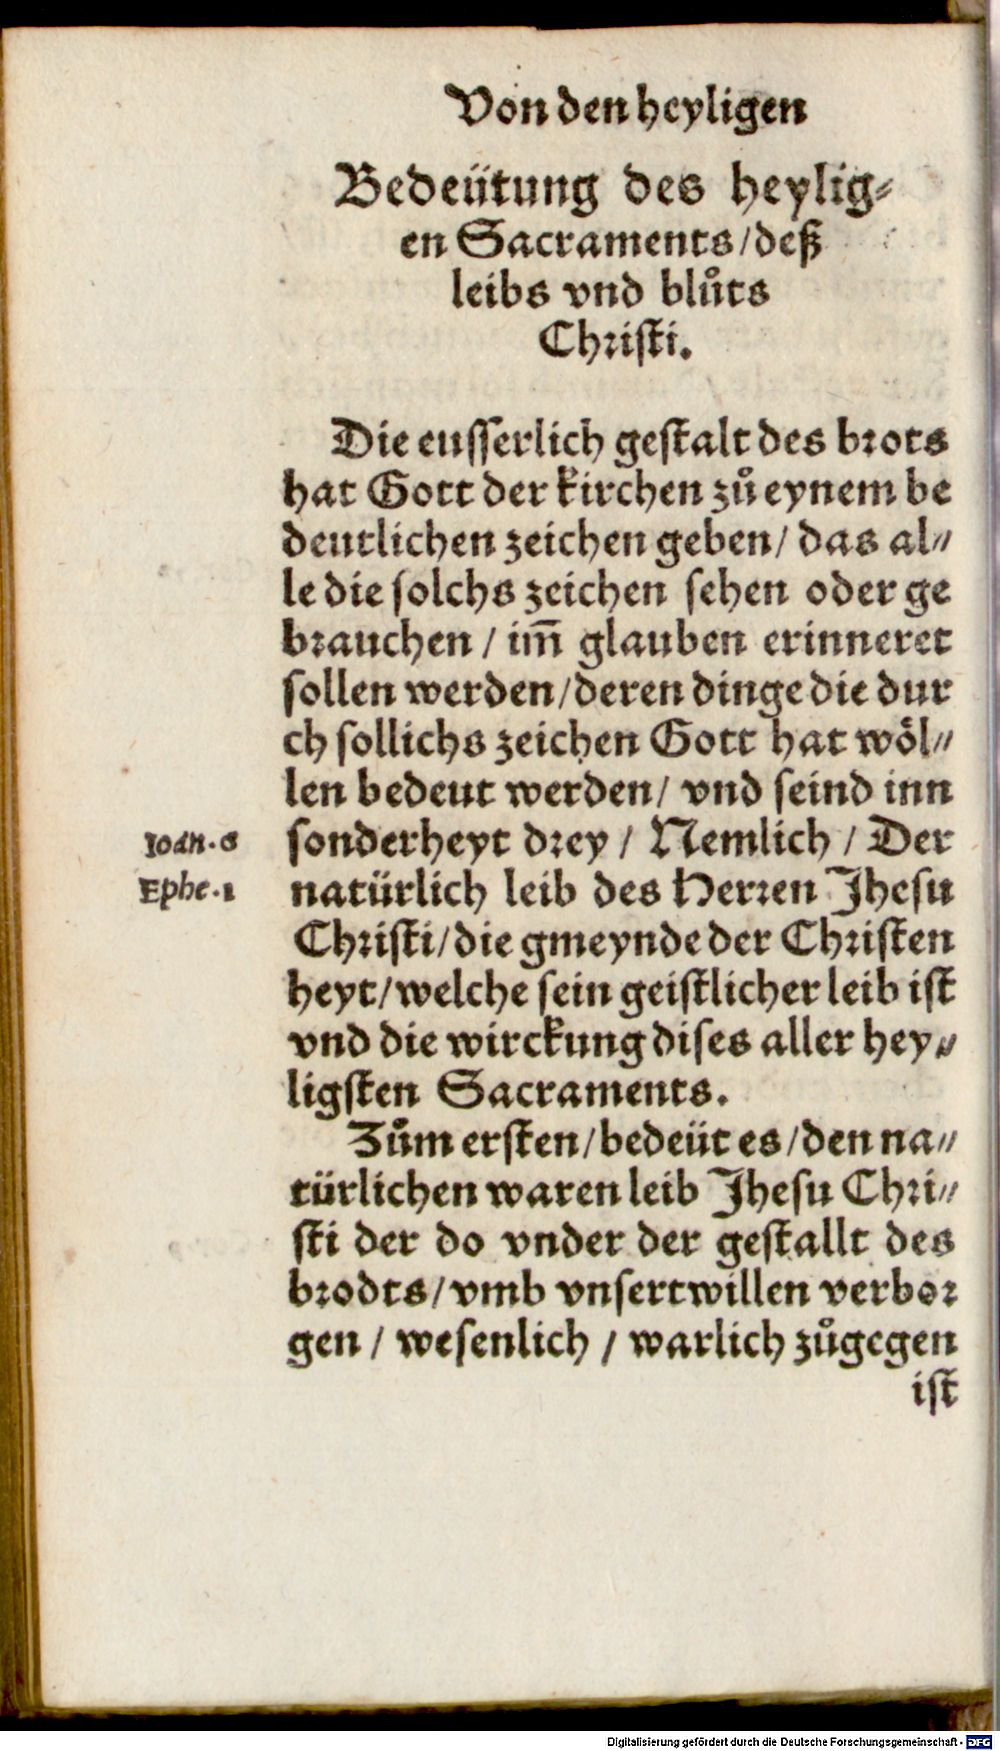 Von den heyligen
Bedeütung des heylig⸗
en Sacraments/deß
leibs vnd blůts
Christi.
Die eusserlich gestalt des brots
hat Gott der kirchen zů eynem be
deutlichen zeichen geben/ das al⸗
le die solchs zeichen sehen oder ge
brauchen / im̄ glauben erinneret
sollen werden/deren dinge die dur
ch sollichs zeichen Gott hat wöl⸗
len bedeut werden/ vnd seind inn
Ioan. 6 sonderheyt drey / Nemlich / Der
Ephe. 1 natürlich leib des Herren Jhesu
Christi/die gmeynde der Christen
heyt/welche sein geistlicher leib ist
vnd die wirckung dises aller hey⸗
ligsten Sacraments.
Zům ersten/bedeüt es/den na⸗
türlichen waren leib Jhesu Chri⸗
sti der do vnder der gestallt des
brodts/vmb vnsertwillen verbor
gen / wesenlich / warlich zůgegen
ist
Digitalisierung gefördert durch die Deutsche Forschungsgemeinschaft - DFG